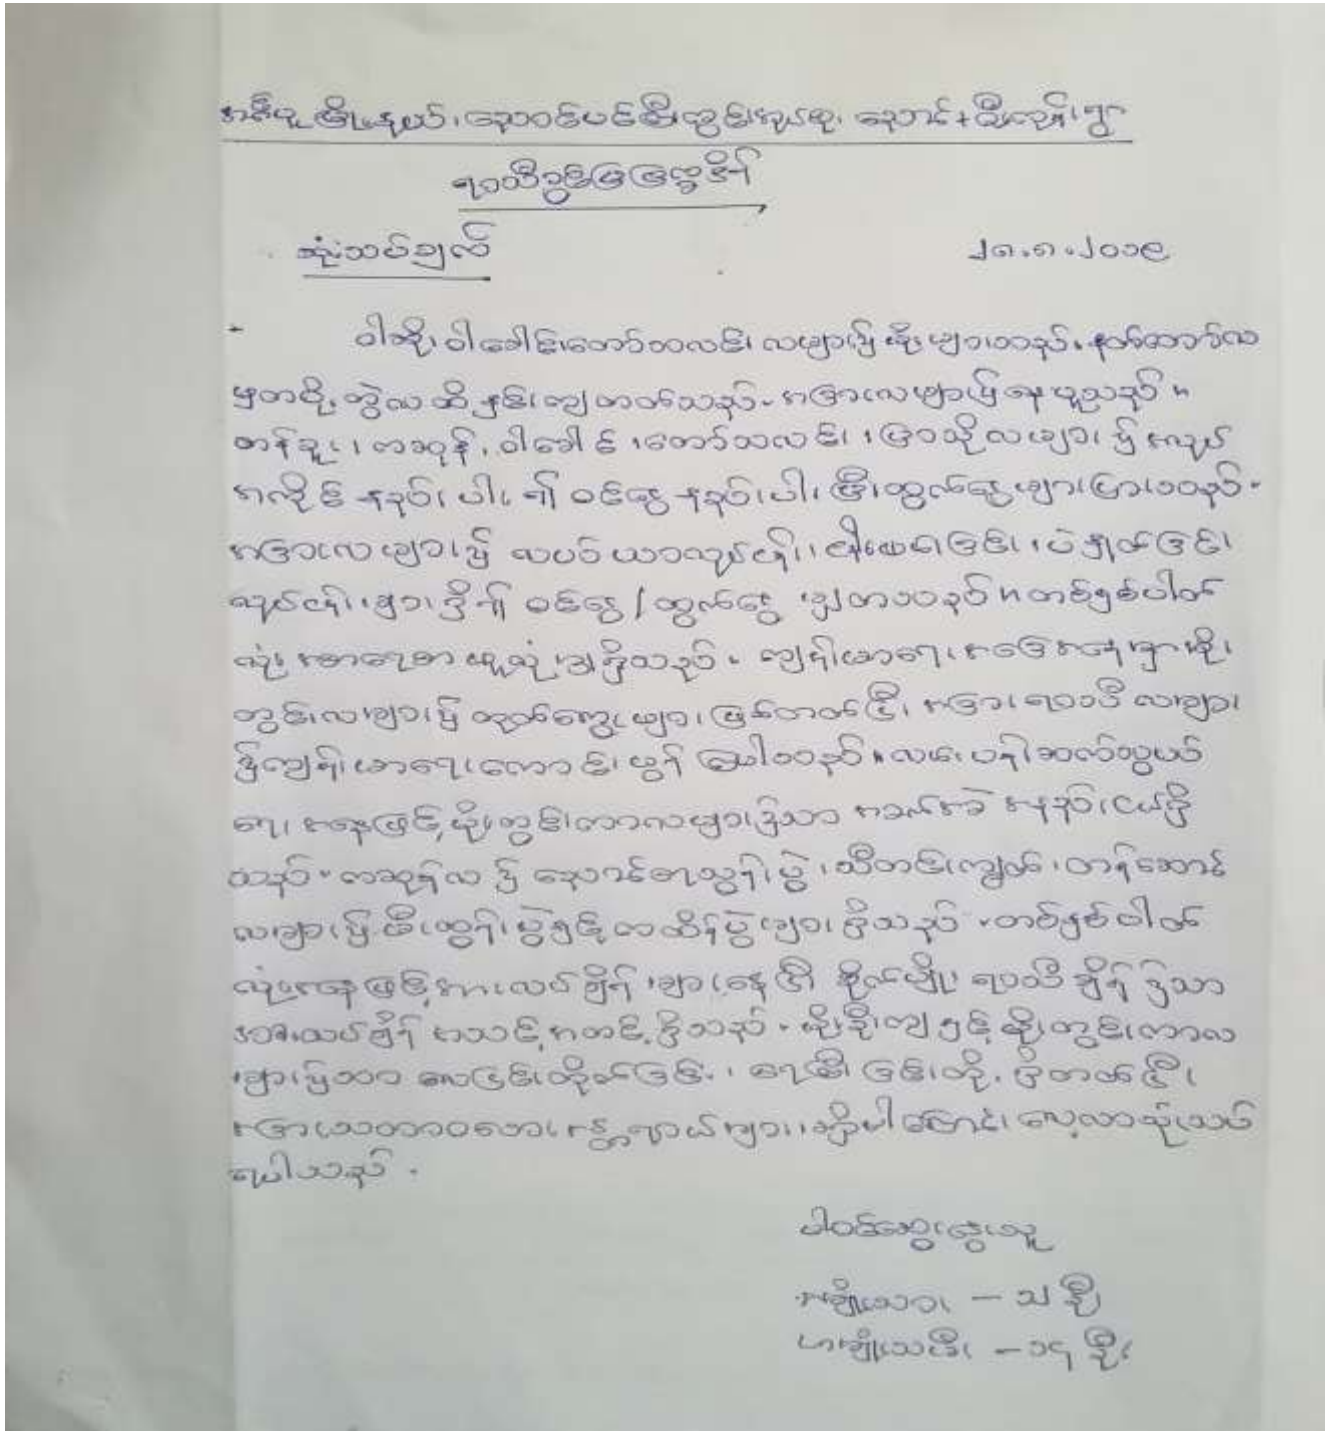 အင်္ဂပူမြို့နယ်၊ ညောင်ပင်ဆီးတွင်းအုပ်စု၊ ညောင် + ဆီးကုန်းရွာ
ရာသီခွင်ပြပြက္ခဒိန်
သုံးသပ်ချက် ၂၈.၈.၂၀၁၉
ဝါဆို၊ ဝါခေါင်၊ တော်သလင်း လများ၌ မိုးများသည်။ နတ်တော်လ
မှတပို့တွဲလထိ နှင်းကျတတ်သည်။ အခြားလများ၌ နေပူသည်။
တန်ခူး၊ ကဆုန်၊ ဝါခေါင်၊ တော်သလင်း၊ ပြာသိုလများ၌ အလုပ်
အကိုင် နည်းပါး၍ ဝင်ငွေ နည်းပါးပြီး ထွက်ငွေများပြားသည်။
အခြားလများ၌ လယ်ယာလုပ်ငန်း၊ ငါးမွေးခြင်း၊ ပဲနှုတ်ခြင်း
လုပ်ငန်းများရှိ၍ ဝင်ငွေ/ထွက်ငွေ မျှတသည်။ တစ်နှစ်ပါတ်
လုံး အစာရေစာ ဖူလုံမှုရှိသည်။ ကျန်းမာရေး အခြေအနေမှာ မိုး
တွင်းလများ၌ တုတ်ကွေးများ ဖြစ်တတ်ပြီး အခြားရာသီ လများ
၌ ကျန်းမာရေးကောင်းမွန် ပေါသည်။ လမ်းပန်းဆက်သွယ်
ရေး အနေဖြင့် မိုးတွင်းကာလများ၌သာ အခက်အခဲ အနည်းငယ်ရှိ
သည်။ ကဆုန်လ ၌ ညောင်ရေသွန်းပွဲ၊ သီတင်းကျွတ်၊ တန်ဆောင်
လများ၌ မီးထွန်းပွဲနှင့် ကထိန်ပွဲများ ရှိသည်။ တစ်နှစ်ပါတ်
လုံးအနေဖြင့် အားလပ်ချိန် များနေပြီး စိုက်ပျိုးရာသီ ချိန်၌သာ
အားလပ်ချိန် အသင့်အတင့်ရှိသည်။ မိုးဦးကျနှင့် မိုးတွင်းကာလ
များ၌သာ လေပြင်းတိုက်ခြင်း၊ ရေကြီးခြင်းတို့ ရှိတတ်ပြီး
အခြားသဘာဝဘေးအန္တရာယ်များ မရှိပါကြောင်း လေ့လာသုံးသပ်
ရပါသည်။
ပါဝင်ဆွေးနွေးသူ
အမျိုးသား – ၁၂ ဦး
အမျိုးသမီး – ၁၄ ဦး